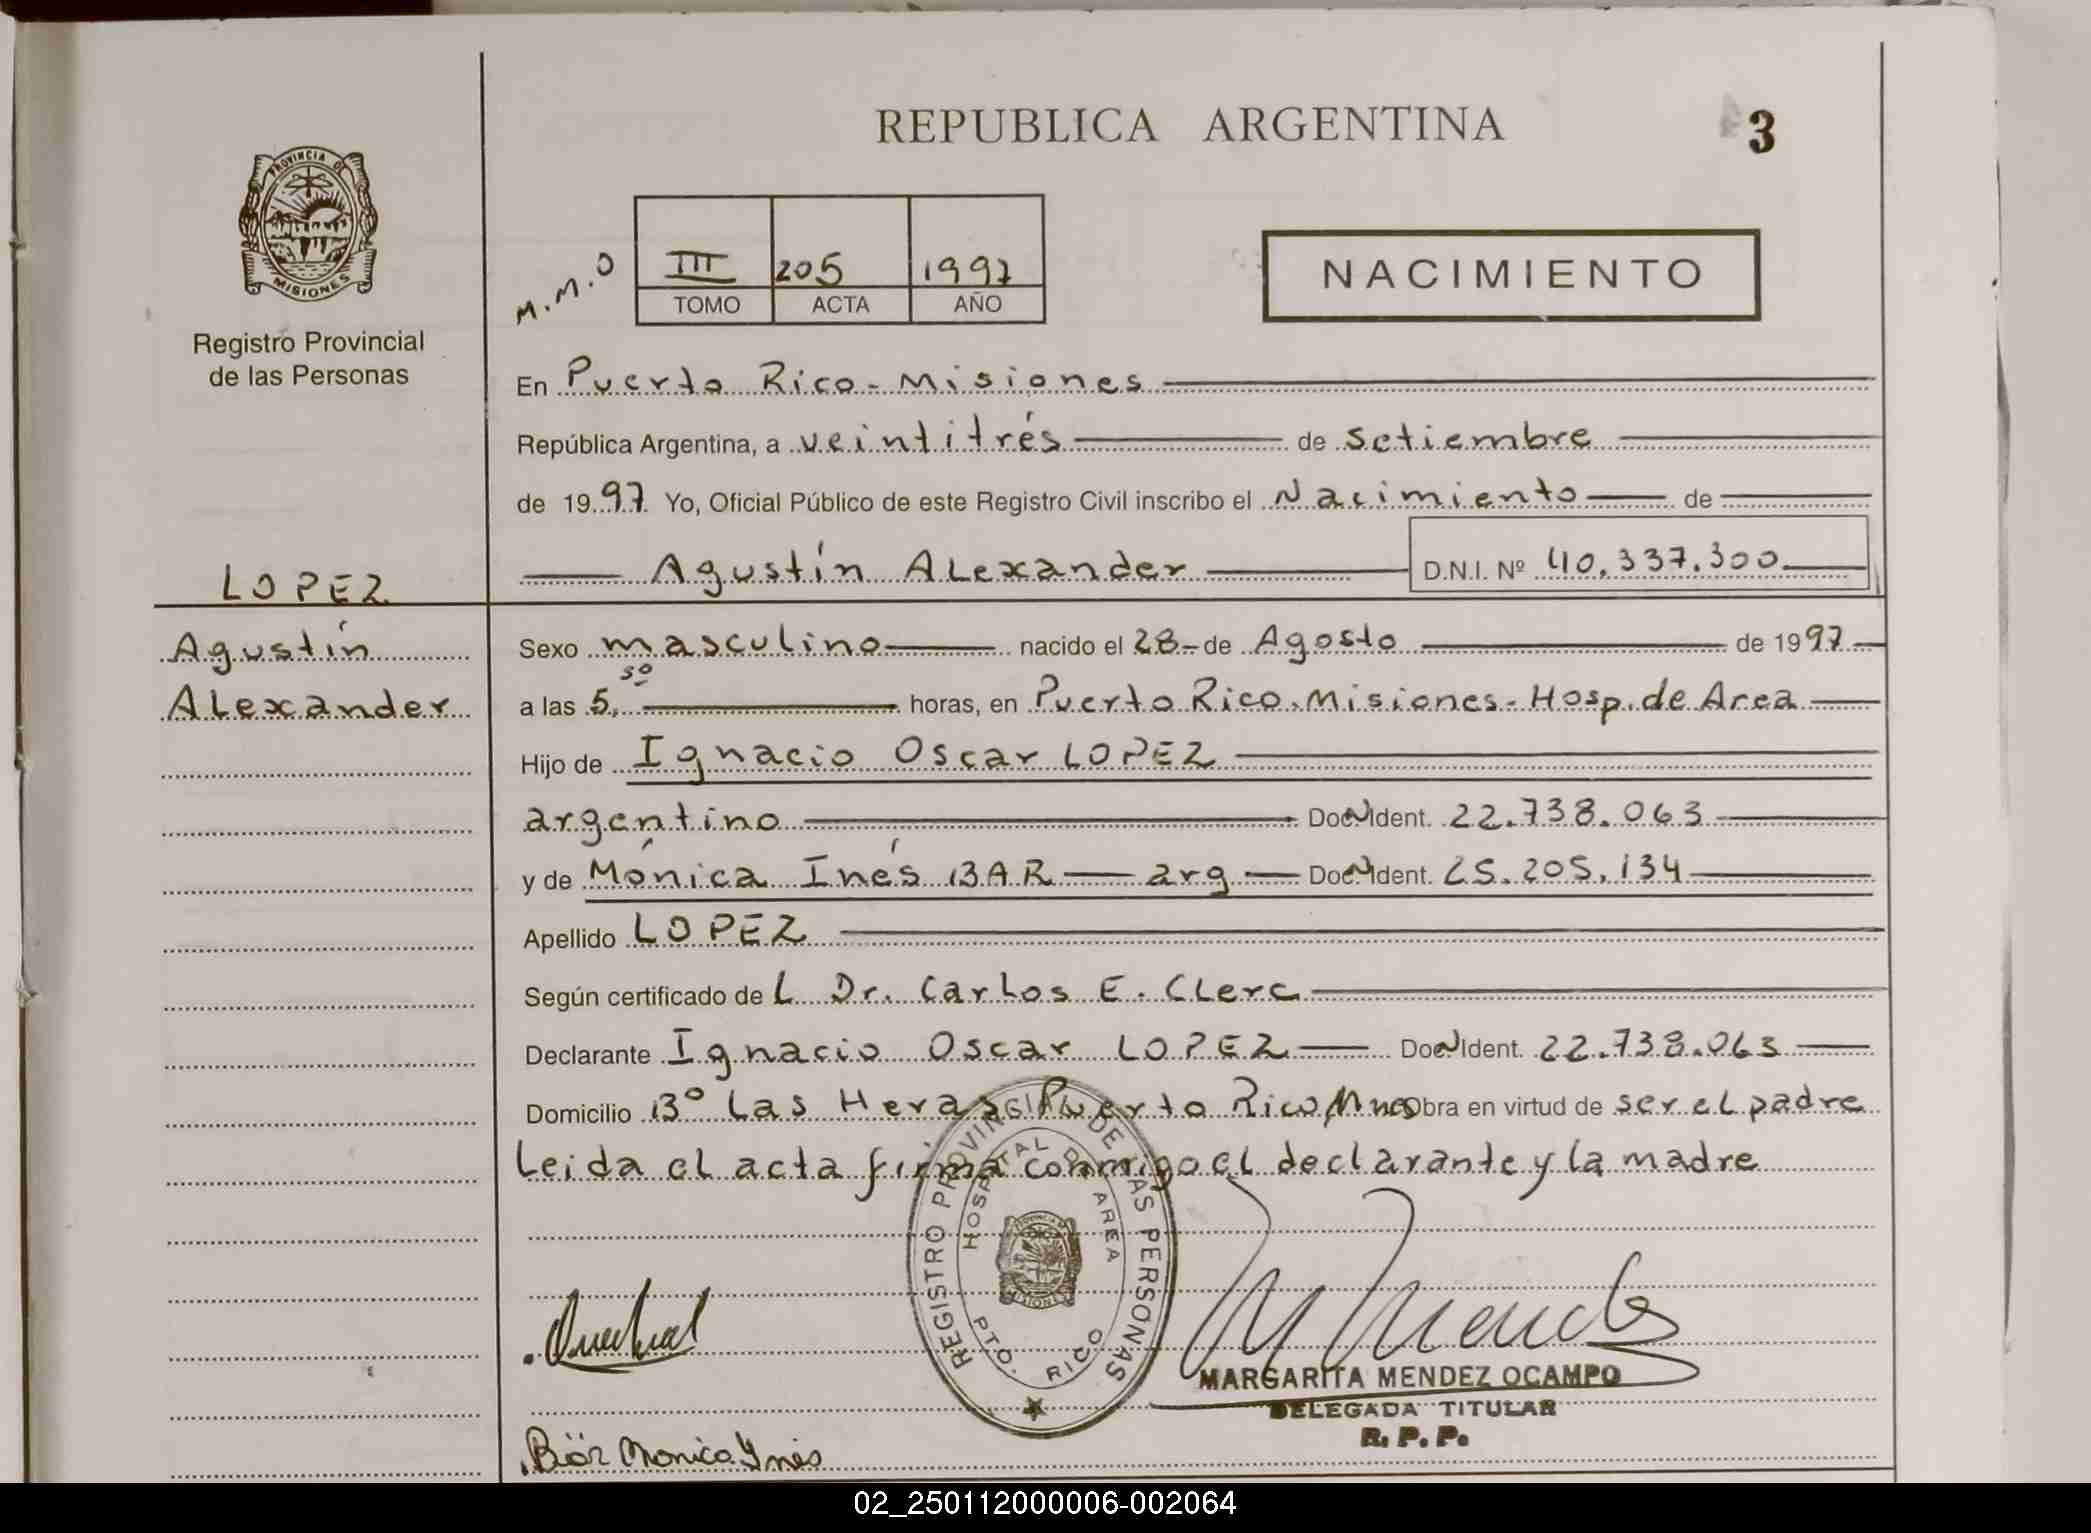 REPUBLICA ARGENTINA
3
PROVINCIA DE
MISIONES
Registro Provincial
de las Personas
M.M.O
III 205 1997
TOMO ACTA AÑO
NACIMIENTO
En Puerto Rico - Misiones
República Argentina, a veintitrés de setiembre
de 1997 Yo, Oficial Público de este Registro Civil inscribo el Nacimiento de
Agustín Alexander D.N.I. Nº 40.337.300
LOPEZ
Agustín
Alexander
Sexo masculino nacido el 28 de Agosto de 1997
a las 5,50 horas, en Puerto Rico. Misiones - Hosp. de Area
Hijo de Ignacio Oscar LOPEZ
argentino Doc Ident. 22.738.063
y de Mónica Inés BAR arg Doc Ident. 25.205.134
Apellido LOPEZ
Según certificado del Dr. Carlos E. Clerc
Declarante Ignacio Oscar LOPEZ Doc Ident. 22.738.063
Domicilio Bº Las Heras Puerto Rico, Mnes Obra en virtud de ser el padre
Leida el acta firma conmigo el declarante y la madre
REGISTRO PROVINCIAL DE LAS PERSONAS
HOSPITAL DE AREA
PTO. RICO
MISIONES
M Mendez
MARGARITA MENDEZ OCAMPO
DELEGADA TITULAR
R. P. P.
Bär Monica Ynés
02_250112000006-002064